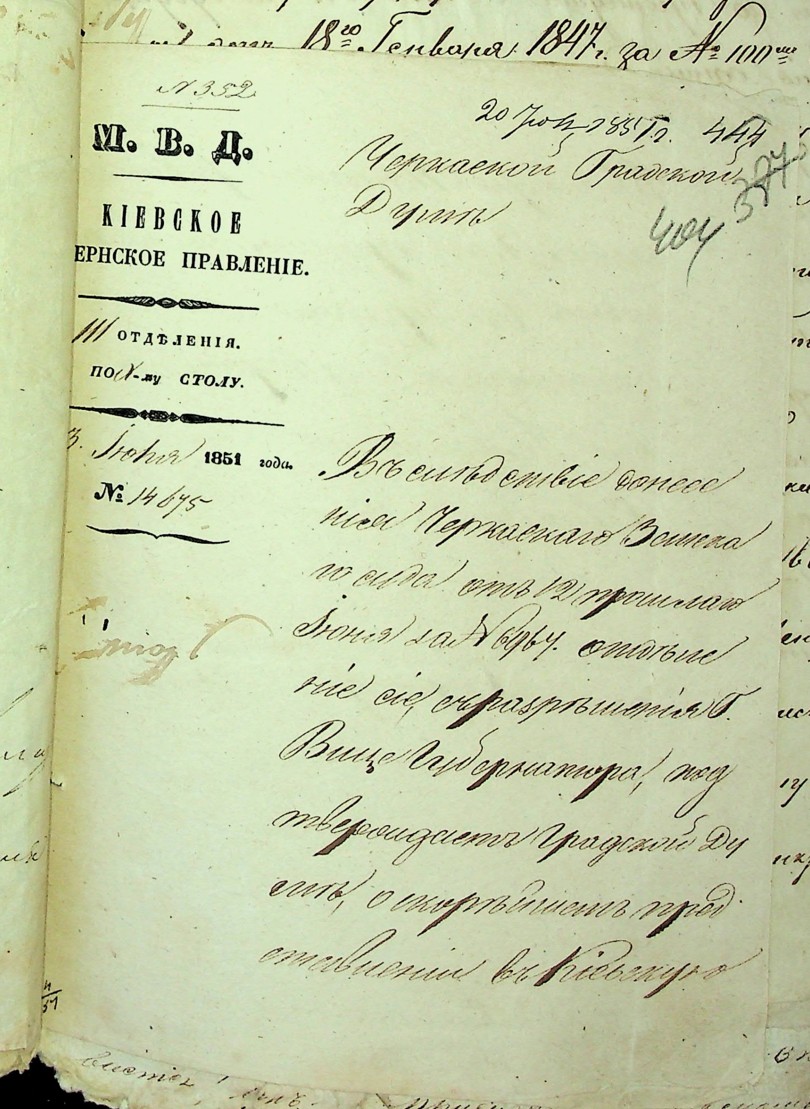 18го Генваря 1847 г. за № 100
№ 352
М. В. Д.
КІЕВСКОЕ
ЕРНСКОЕ ПРАВЛЕНІЕ.
III ОТДѢЛЕНІЯ.
ПО му СТОЛУ.
3. Іюня 1851 года.
№ 14675
20 1851 г. 444
Черкаской Градской
Думѣ
387
404
Въ слѣдствіе донесе
нія Черкаскаго Земска
го суда отъ 12 прошлаго
Іюня за № 6964. отдѣле
ніе сіе, съ разрѣшенія Г.
Вице Губернатора, под
тверждаетъ Градской Ду
мѣ, о скорѣйшемъ пред
ставленіи въ Кіевскую